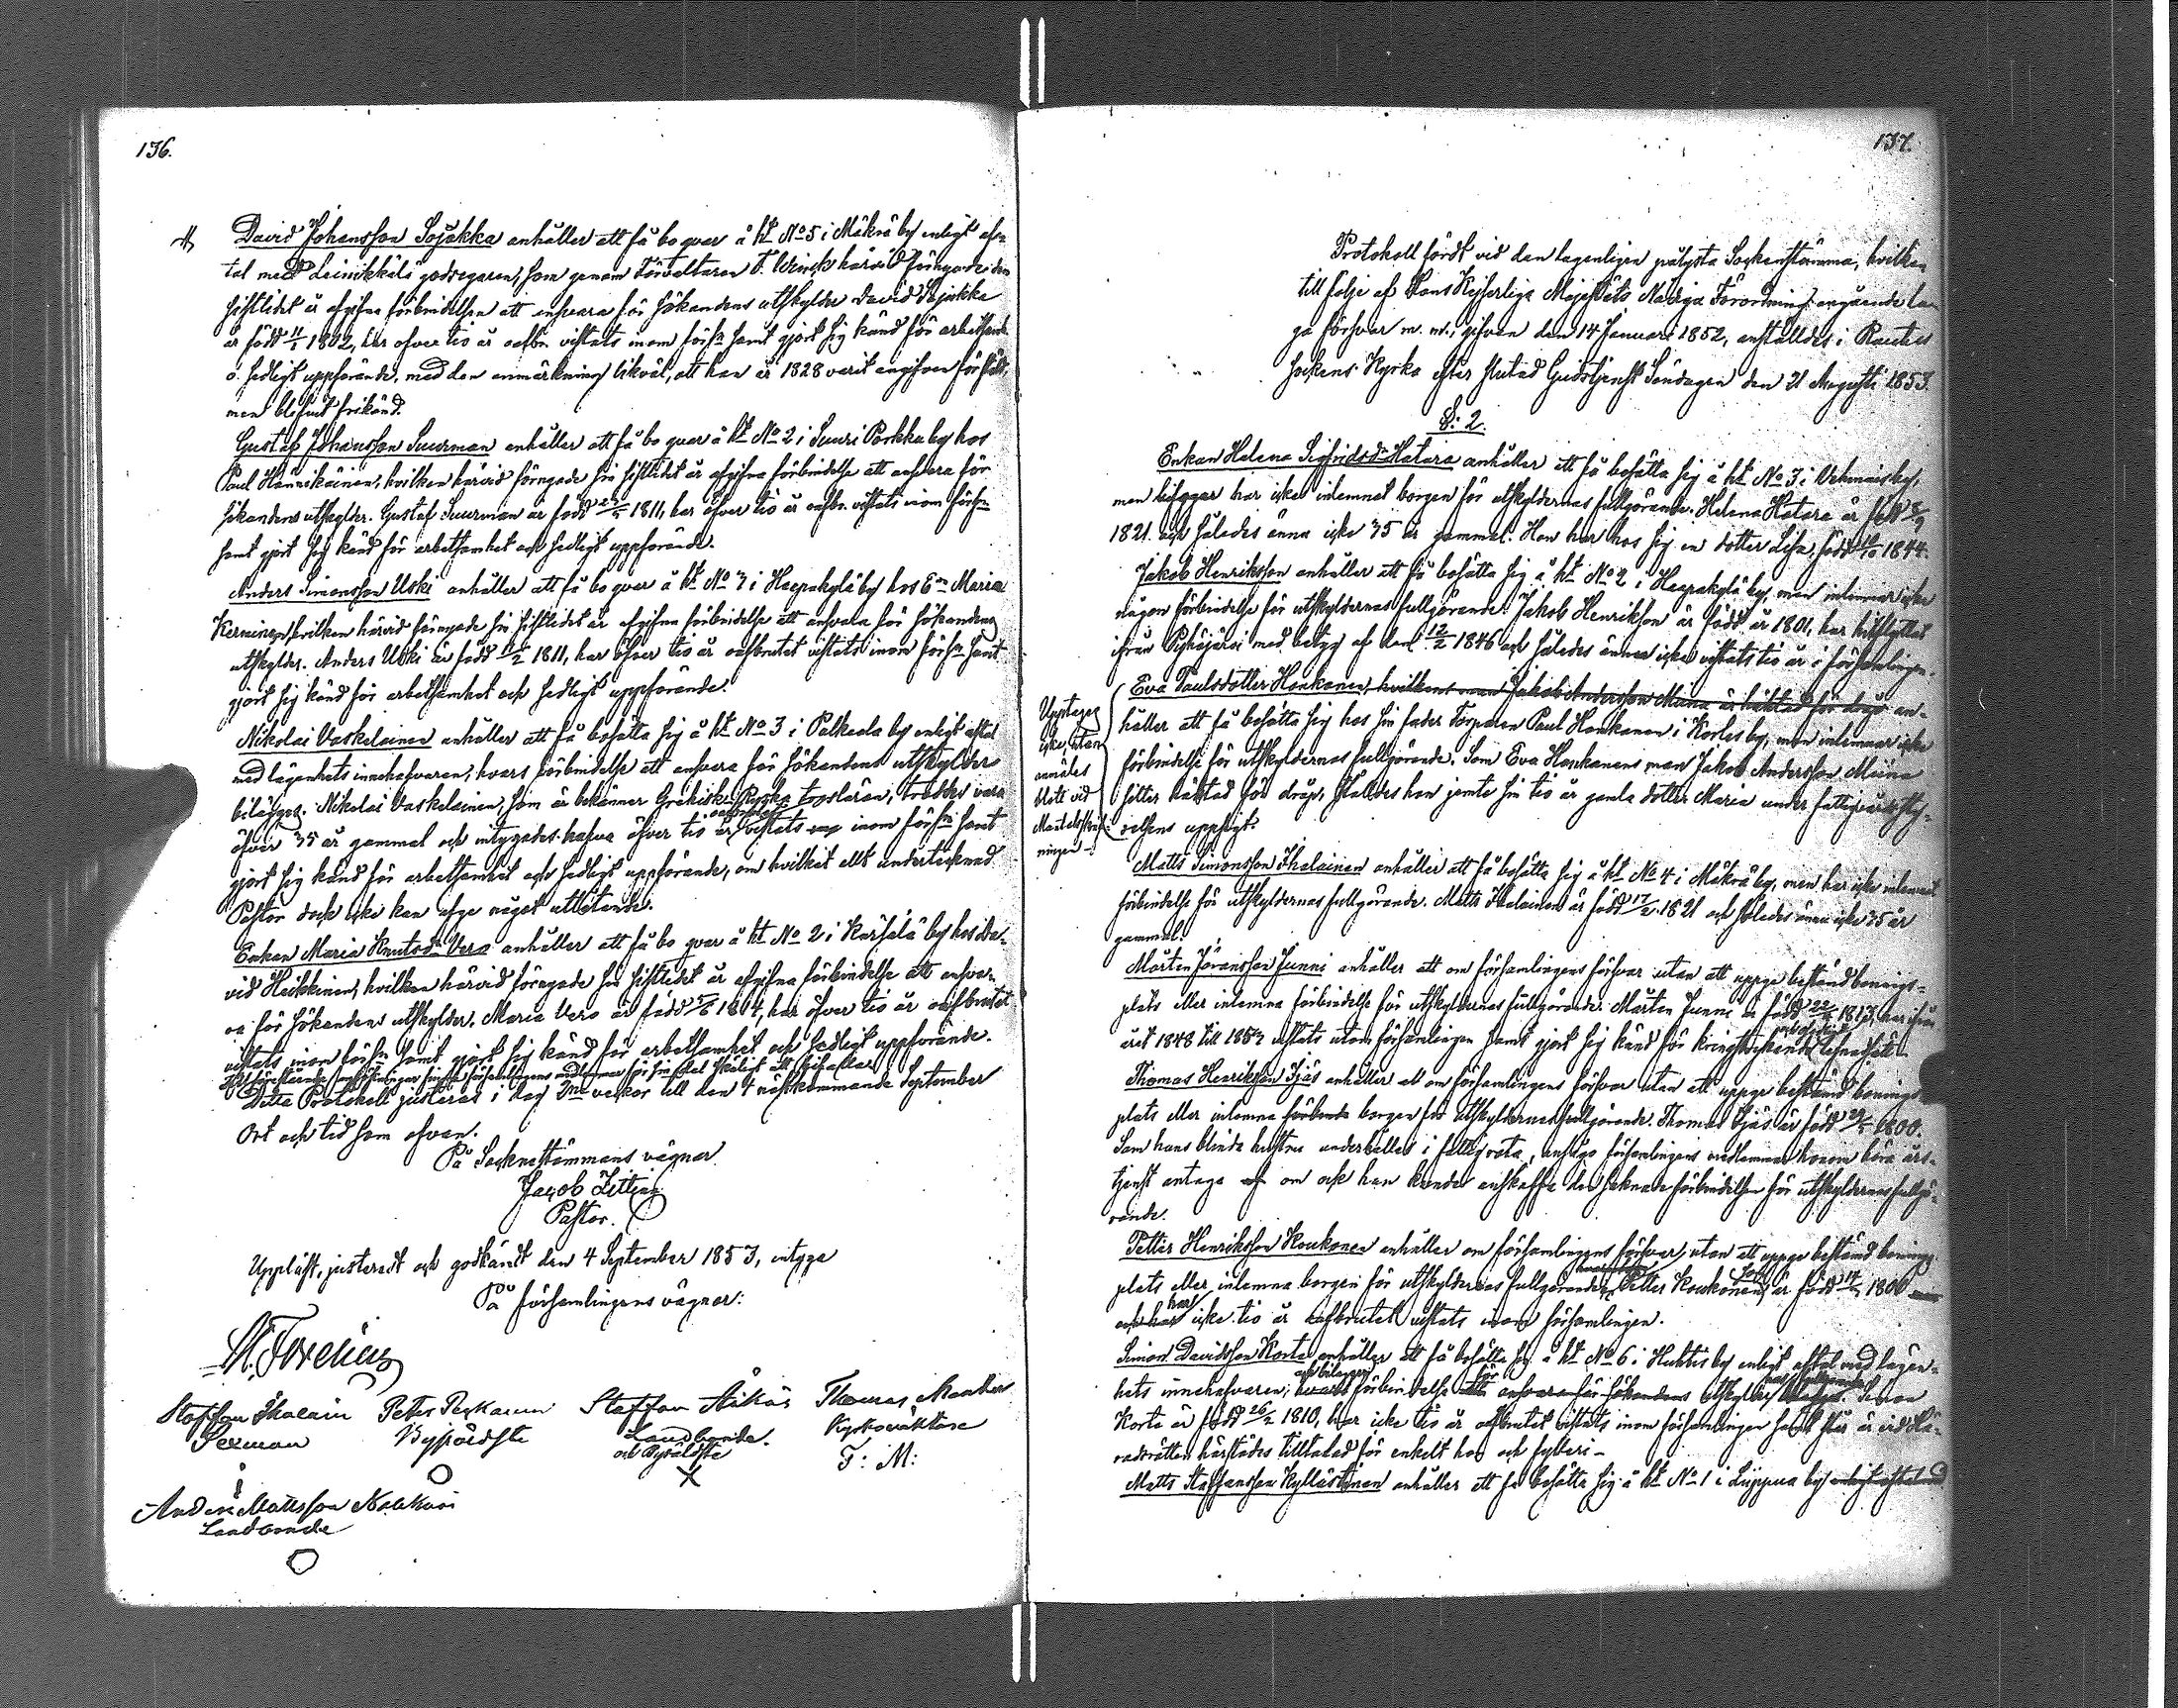 136.
David Johansson Sojakka anhåller att få bo qvar å ht No 5 i Mäkrä by enligt af-
tal med Leinikkälä godsegaren, som genom Förvaltaren härvid förnyade den
sistlidet år afgifne förbindelsen att ansvara för sökandens utskylder David Sojakka
är född 1802, har öfver tio år oafbr. vistats inom förs:n samt gjort sig känd för arbetsamh.
o. sedligt uppförande, med den anmärkning likväl, att han år 1828 varit angifven för
men blifvit frikänd.
Gustaf Johansson Suurman anhåller att få bo qvar å ht No 2 i Suuri Porkka by hos
Paul Hännikäinen, hvilken härvid förnyade sin sistlidet år afgifna förbindelse att ansvara för
sökandens utskylder. Gustaf Suurman är född 1811, har öfver tio år oafbr. vistats inom förs:n
samt gjort sig känd för arbetsamhet och sedligt uppförande.
Anders Simonsson Uski anhåller att få bo qvar å ht No 3 i Haapakylä by hos E:n Maria
Kerninen, hvilken härvid förnyade sin sistlidet år afgifna förbindelse att ansvara för sökandens
utskylder. Anders Uski är född 1811, har öfver tio år oafbrutet vistats inom förs:n samt
gjort sig känd för arbetsamhet och sedligt uppförande.
Nikolai Vaskelainen anhåller att få bosätta sig å ht No 3 i Palkeala by enligt aftal
med lägenhets innehafvaren, hvars förbindelse att ansvara för sökandens utskylder
bilägges. Nikolai Vaskelainen, som är bekännare Grekisk Ryska trosläran, troddes vara
öfver 35 år gammal och intygades hafva öfver tio år oafbrutet vistats inom förs:n samt
gjort sig känd för arbetsamhet och sedligt uppförande, om hvilket allt undertecknad
Pastor dock icke kan afge något utlåtande.
Enkan Maria Knutsd:r Vero anhåller att få bo qvar å ht No 2 i Karsälä by hos Da-
vid Heikkinen, hvilken härvid förnyade sin sistlidet år afgifna förbindelse att ansva-
ra för sökandens utskylder. Maria Vero är född 1804, har öfver tio år oafbrutet
vistats inom förs:n samt gjort sig känd för arbetsamhet och sedligt uppförande.
förestående ansökningar församlingens medlemmar för sin del skäligt att bifalla
Detta Protokoll justeras i dag 2ne veckor till den 4 nästkommande September
Ort och tid som ofvan.
På Sockenstämmans vägnar
Jacob Zitting
Pastor.
Uppläst, justeradt och godkändt den 4 September 1853, intyga
På församlingens vägnar:
Staffan Ihalain Petter Staffan Thomas
Sexman Byålderste Landbonde Kyrkovaktare
och Byålderste T: M:
X
Anders Mattsson
Landbonde
137.
Protokoll fördt vid den lagenligen pålysta Sockenstämma, hvilken
till följe af Hans Kejserliga Majestäts Nådiga Förordning angående la-
ga försvar m. m. gifven den 14 Januari 1852, anställdes i Rautus
sockens Kyrka efter slutad Gudstjenst Söndagen den 21 Augusti 1853.
§: 2.
Enkan Helena Sigfridsd:r Hatara anhåller att få bosätta sig å ht No 3 i Vehmais by,
men har icke inlemnat borgen för utskyldernas fullgörande. Helena Hatara är född
1821 och således ännu icke 35 år gammal. Hon har hos sig en dotter Lisa, född 1844.
Jakob Henriksson anhåller att få bosätta sig å ht No 2 i Haapakylä by, men inlemnar icke
någon förbindelse för utskyldernas fullgörande. Jakob Henriksson är född år 1801, har hitflyttat
ifrån Pyhäjärvi med betyg af den 12/2 1846 och således ännu icke vistats tio år i församlingen.
Eva Paulsdotter Honkanen, hvilkens man Jakob Andersson Muina är häktad för dråp an-
håller att få bosätta sig hos sin fader Torparen Paul Honkanen i Korles by, men inlemnar icke
förbindelse för utskyldernas fullgörande. Som Eva Honkanens man Jakob Andersson Muina
sitter häktad för dråp, ställdes hon jemte sin tio år gamla dotter Maria under fattigvårdssty-
relsens uppsigt.
Upptages
icke, utan
anmäles
blott vid
Mantalsskrif-
ningen
Matts Simonsson Ihalainen anhåller att få bosätta sig å ht No 4 i Mäkrä by, men har icke inlemnat
förbindelse för utskyldernas fullgörande. Matts Ihalainen är född 17/2 1821 och således ännu icke 35 år
gammal.
Mårten Göransson Junni anhåller att om församlingens försvar utan att uppge bestämd bonings-
plats eller inlemna förbindelse för utskyldernas fullgörande. Mårten Junni är född 1813, har ifrån
året 1848 till 1853 vistats utom församlingen samt gjort sig känd för kringstrykande lefnadssätt
Thomas Henriksson Ijäs anhåller att om församlingens försvar utan att uppge bestämd bonings-
plats eller inlemna förbinde borgen för utskyldernas fullgörande. Thomas Ijäs är född 1800.
Som hans blinda hustru underhålles i fattigrota, ansågo församlingens medlemmar honom böra års-
tjenst antaga om och han kunde anskaffa den saknade förbindelsen för utskyldernas fullgö-
rande.
Petter Henriksson Koukonen anhåller om församlingens försvar, utan att uppge bestämd bonings-
plats eller inlemna borgen för utskyldernas fullgörande. Petter Koukonen, som är född 1806
och har icke tio år oafbrutet vistats inom församlingen.
Simon Davidsson Korte anhåller att få bosätta sig å ht No 6 i Huhtis by enligt aftal med lägen-
hets innehafvaren, och bilägger hvars förbindelse att ansvara för sökandens utskylder. Simon
Korte är född 26/2 1810, har icke tio år oafbrutet vistats inom församlingen samt
härstädes tilltalad för enkelt hor och fylleri
Matts Staffansson Kyllästinen anhåller att få bosätta sig å ht No 1 i Liippua by enligt aftal med